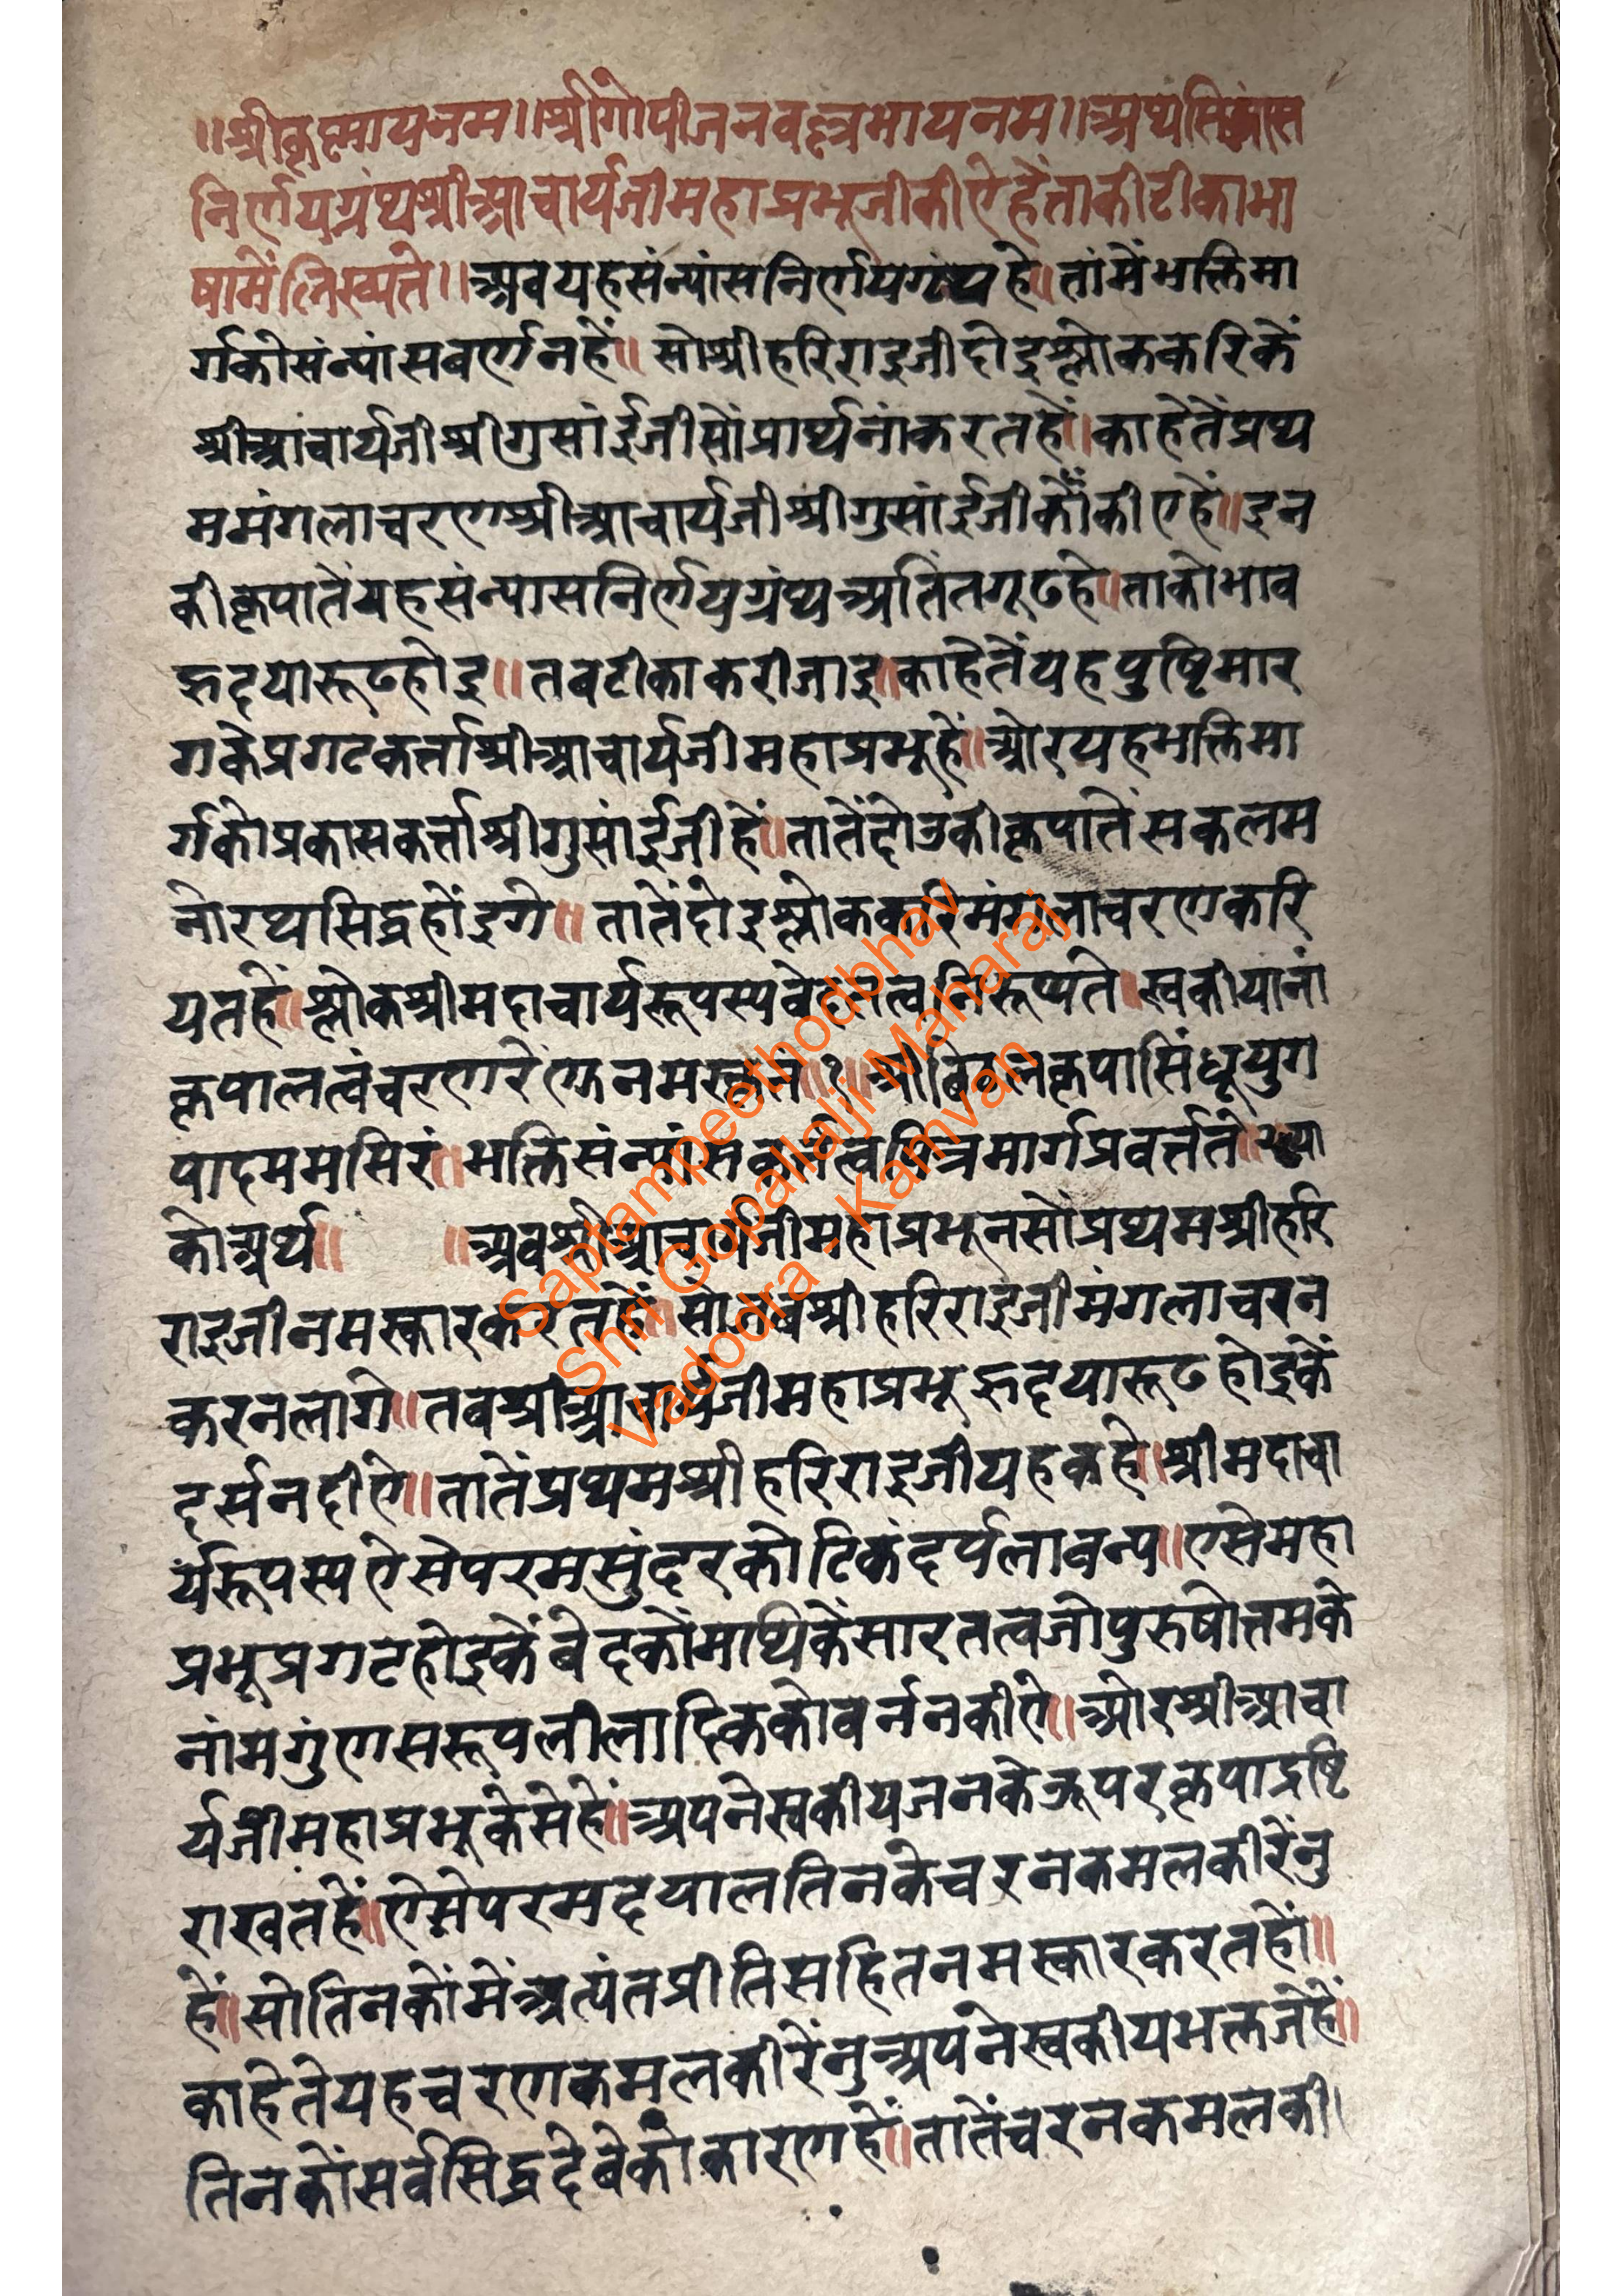 ॥श्रीकृष्णायनम॥श्रीगोपीजनवल्लभायनम॥अथसिंन्यांस
निर्णयग्रंथश्रीआचार्यजीमहाप्रभूजीकीऐहैताकीटीकाभा
षामेंलिख्यते॥अवयहसंन्यांसनिर्णयग्रंथहे॥तांमेंभक्तिमा
र्गकीसंन्यांसवर्णनहें॥सोश्रीहरिराइजीदोइश्लोककरिकें
श्रीआंचार्यजीश्रीगुसांईजीसोंप्रार्थनांकरतहें॥काहेतेंप्रथ
ममंगलाचरणश्रीआचार्यजीश्रीगुसांईजीकोंकीएहें॥इन
कीकृपातेंयहसंन्यासनिर्णयग्रंथअतिंतगूढहे॥ताकोभाव
हृदयारूढहोइ॥तबटीकाकरीजाइ॥काहेतेंयहपुष्टिमार
गकेप्रगटकर्त्ताश्रीआचार्यजीमहाप्रभूहें॥ओरयहभक्तिमा
र्गकोप्रकासकर्त्ताश्रीगुसांईजीहें॥तातेंदोउंकीकृपातेंसकलम
नोरथसिद्धहोंइगे॥तातेंदोइश्लोककरिमंगलाचरणकरि
यतहें॥श्लोकश्रीमदाचार्यरूपस्यवेदतत्वनिरूप्यते॥स्वकीयानां
कृपालत्वंचरणरें नमस्कृतं॥१॥श्रीविठ्ठलकृपासिंधूयुग
पादममसिरं॥भक्तिसंन्यांस मार्गप्रवर्त्तते॥२॥या
कोअर्थ॥ ॥अवश्रीआचार्यजीमहाप्रभूनसोंप्रथमश्रीहरि
राइजीनमस्कारकरतहें॥सोजबश्रीहरिराइजीमंगलाचरन
करनलागे॥तवश्रीआचार्यजीमहाप्रभूहृदयारूढहोइकें
दर्सनदीऐ॥तातेंप्रथमश्रीहरिराइजीयहकहे॥श्रीमदाचा
र्यरूपस्यऐसेपरमसुंदरकोटिकंदर्पलावन्य॥एसेमहा
प्रभूप्रगटहोइकेंबेदकोंमाथिकेंसारतत्वजोपुरुषोत्तमके
नांमगुंणसरूपलीलादिककोवर्ननकीऐ॥ओरश्रीआचा
र्यजीमहाप्रभूकेसेहें॥अपनेस्वकीयजनकेऊपरकृपाद्रष्टि
राखतहें॥ऐसेपरमदयालतिनकेचरनकमलकीरेंनु
हें॥सोतिनकोंमेंअत्यंतप्रीतिसहितनमस्कारकरतहों॥
काहेतेयहचरणकमलकीरेंनुअपनेस्वकीयभक्तजेहें॥
तिनकोंसर्वसिद्धदेबेकोंकारणहें॥तातेंचरनकमलकी।
Saptampeethodbhav
Shri Gopallalji Maharaj
Vadodra - Kamvan